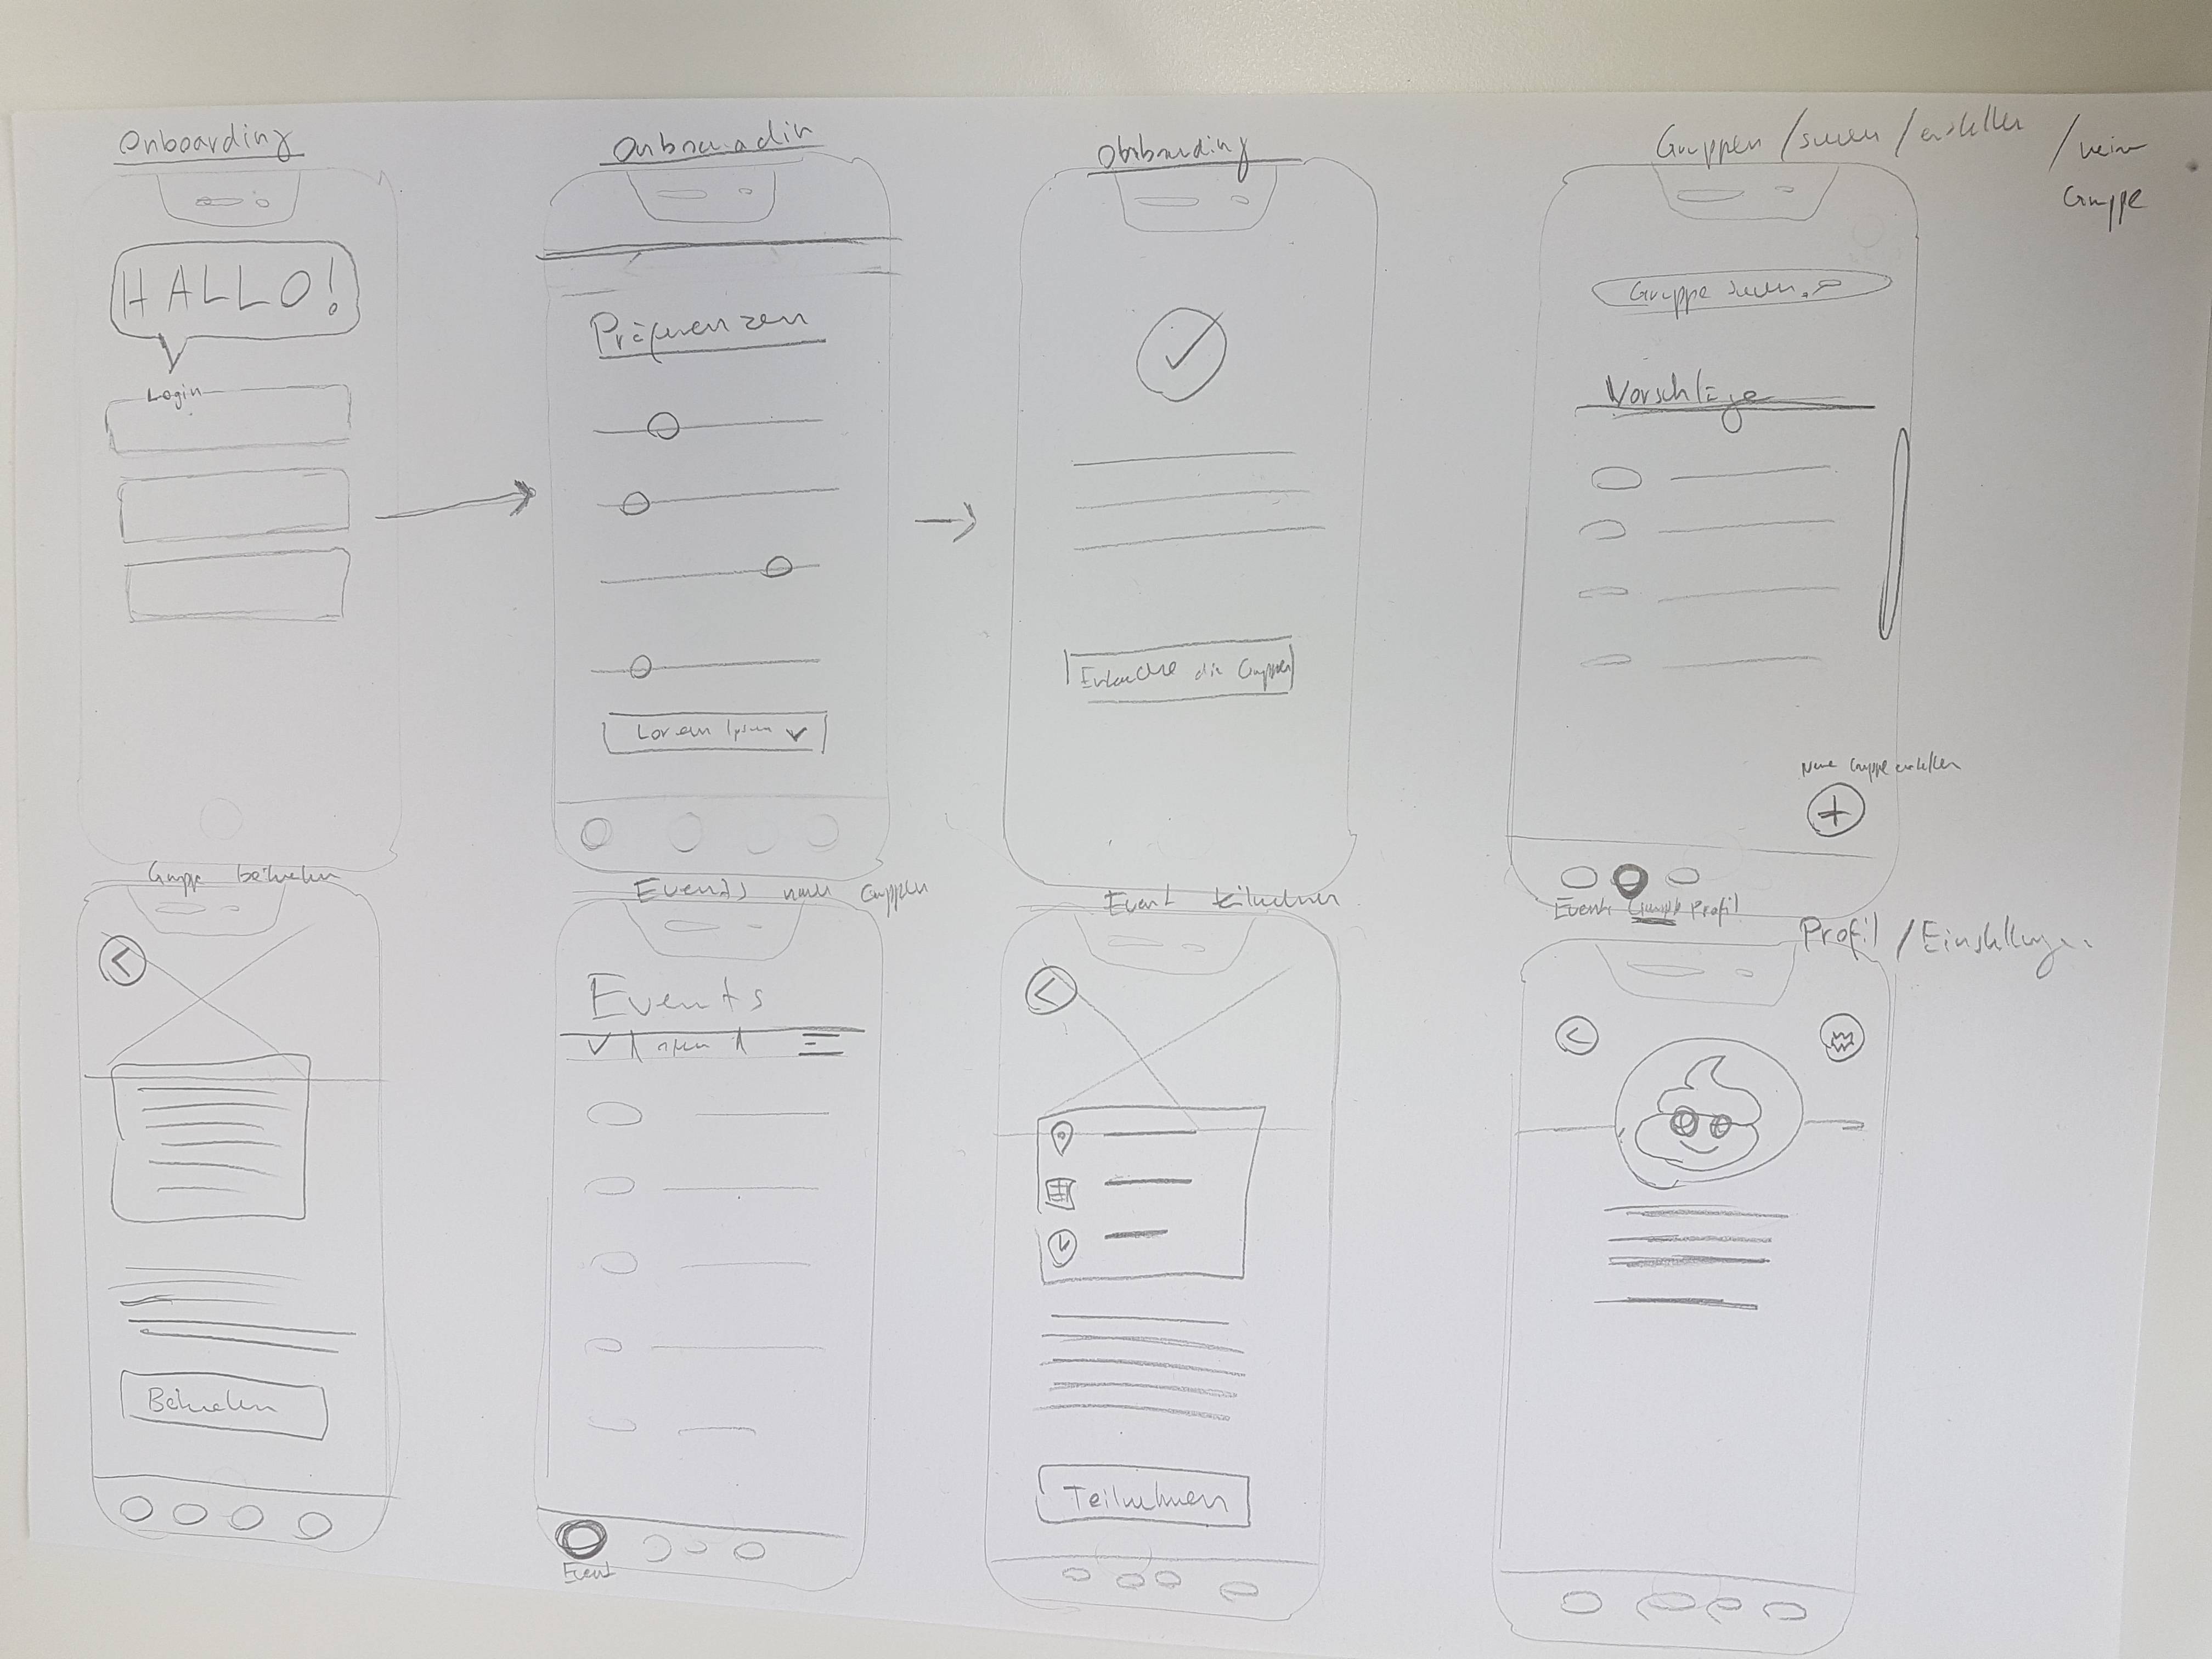 Onboarding
HALLO!
Login
Onboaradin
Präferenzen
Lorem Ipsum
Onboarding
Entdecke die Gruppen
Gruppen / suchen / erstellen / meine
Gruppe
Gruppe suchen
Vorschläge
Neue Gruppe erstellen
Events Gruppe Profil
Gruppe beitreten
Beitreten
Events nach Gruppen
Events
Event
Event teilnehmen
Teilnehmen
Profil / Einstellungen